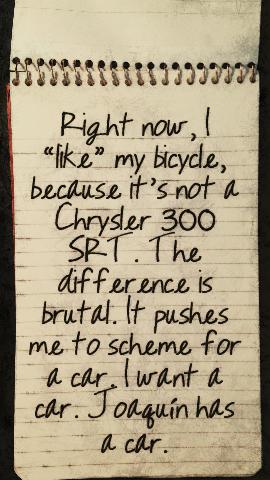 Right now, I
“like” my bicycle,
because it's not a
Chrysler 300
SRT. The
difference is
brutal. It pushes
me to scheme for
a car. I want a
car. Joaquín has
a car.